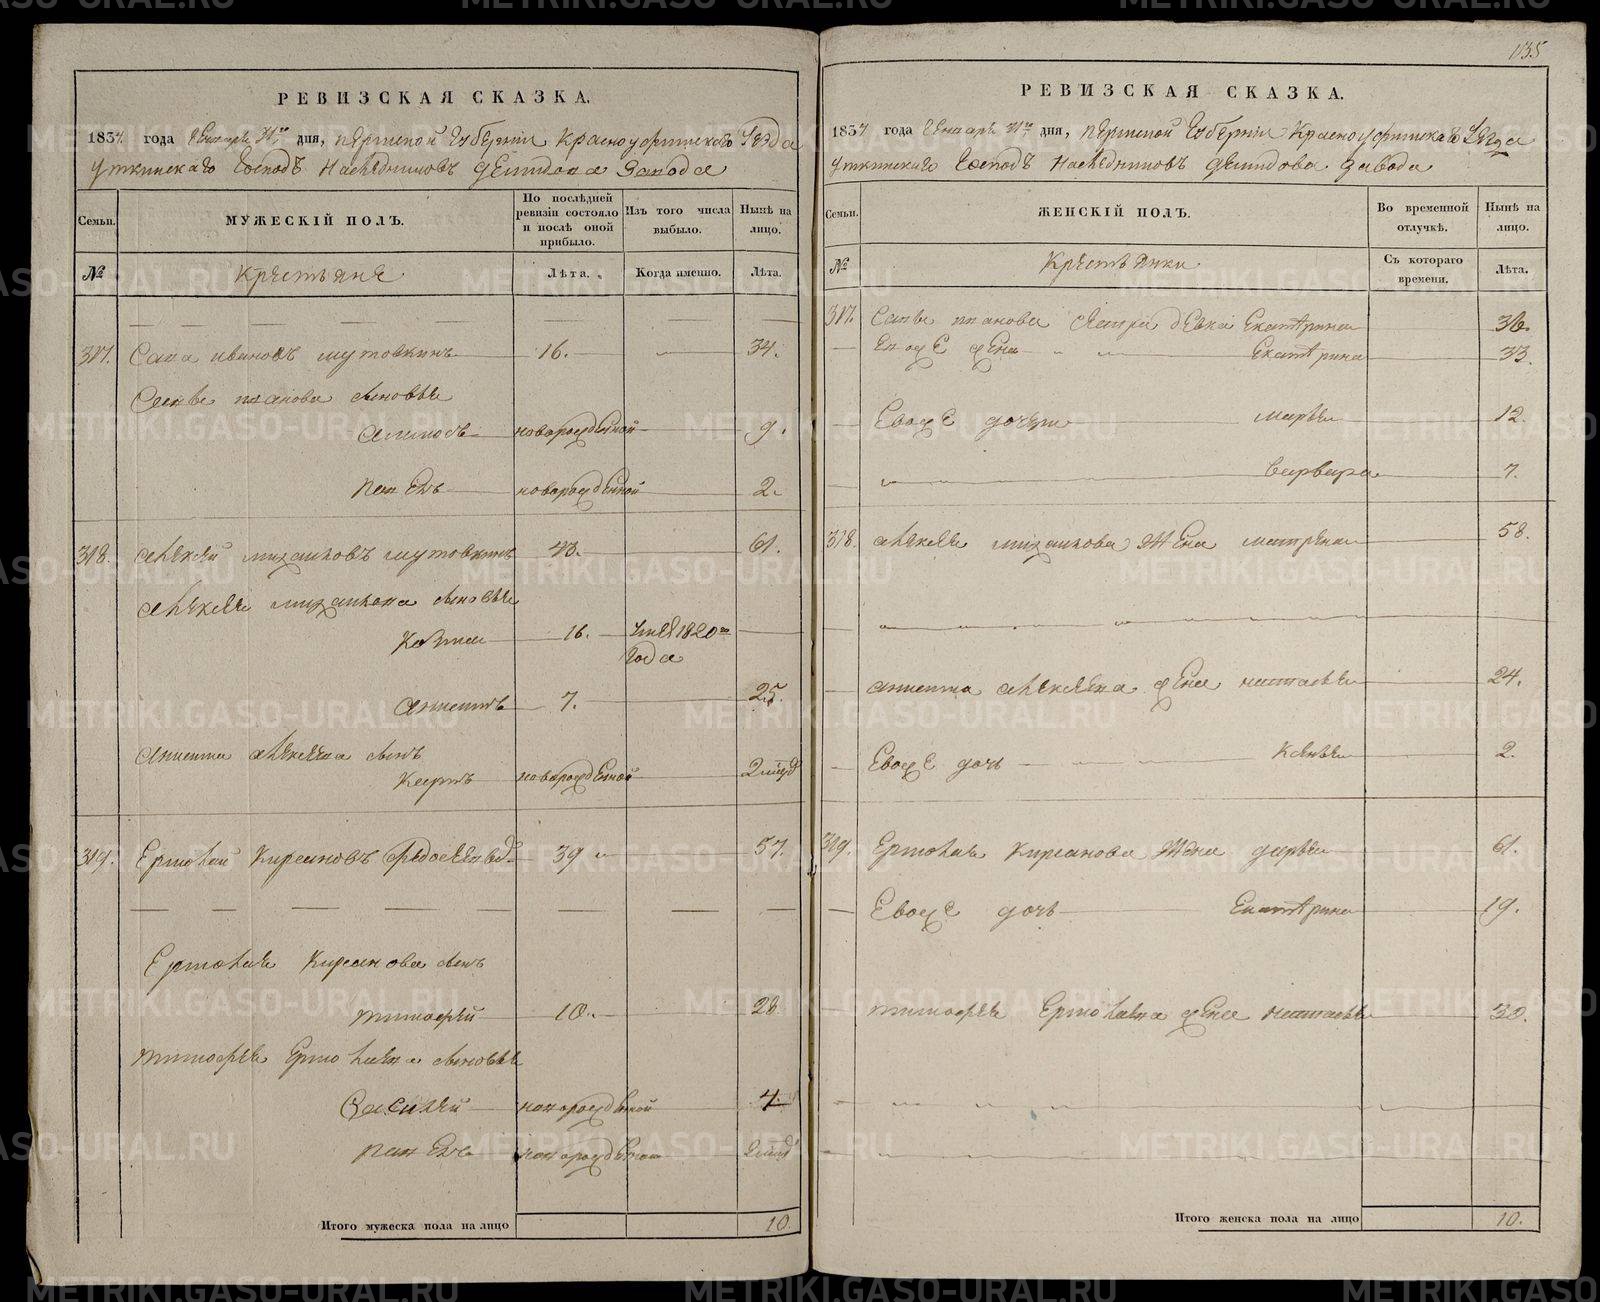 135
РЕВИЗСКАЯ СКАЗКА.
1834. года Генваря 31го дня, пермской губернии Красноуфимскаго Уезда
Уткинскаго Господъ Наследниковъ демидова Завода
Семьи.
МУЖЕСКІЙ ПОЛЪ.
По последней ревизіи состояло и послѣ оной прибыло.
Изъ того числа выбыло.
Нынѣ на лицо.
№
Крестьяне
Лѣта.
Когда именно.
Лѣта.
317. Сава ивановъ шутовкинъ 16. 34.
Савы иванова сыновья
новорожденной 9.
павелъ новорожденной 2.
318. алексей михаиловъ шутовкинъ 43. 61.
алексея михаилова сыновья
Козма 16. Умеръ 1820го
года
аникита 7. 25.
алексеева сынъ
Карпъ новорожденной 2 нед
319. Ермолай Кирсановъ Федосеевъ 39 57.
Ермолая Кирсанова сынъ
тимофей 10. 28
тимофея Ермолаева сыновья
Василей новорожденной 4.
павелъ новорожденной
Итого мужеска пола на лицо 10.
РЕВИЗСКАЯ СКАЗКА.
1834 года Генваря 31го дня, пермской Губернии Красноуфимскаго Уезда
Уткинскаго Господъ Наследниковъ демидова Завода
Семьи.
ЖЕНСКІЙ ПОЛЪ.
Во временной отлучкѣ.
Нынѣ на лицо.
№
Крестьянки
Съ котораго времени.
Лѣта.
317. Савы иванова сестра девка Екатерина 36.
Ево же жена Екатерина 33.
Евоже дочери марья 12.
варвара 7.
318. алексея михаилова жена матрена 58.
алексеева жена настасья 24.
Евоже дочь Ксенья 2.
319. Ермолая Кирсанова жена дарья 61.
Евоже дочь Екатерина 19.
тимофея Ермолаева жена настасья 30.
Итого женска пола на лицо 10.
METRIKI.GASO-URAL.RU